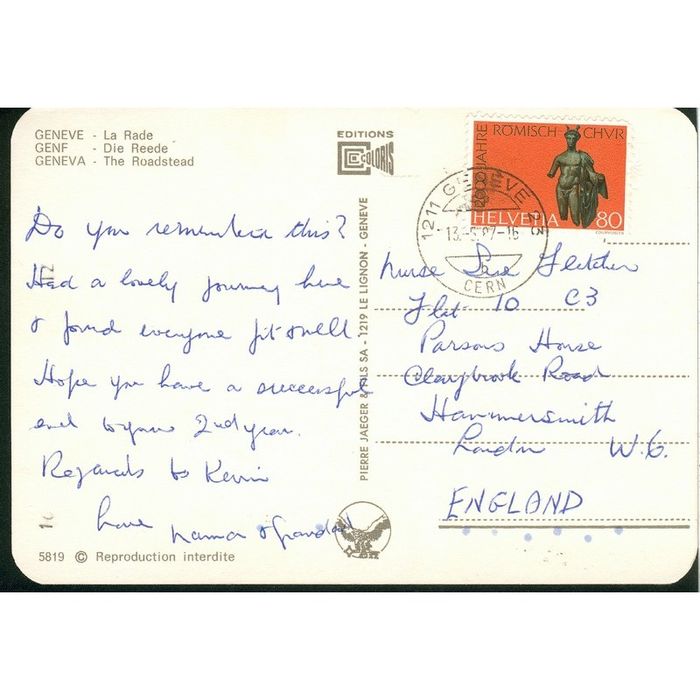 GENEVE - La Rade
GENF - Die Reede
GENEVA - The Roadstead
EDITIONS
COLORIS
Do you remember this?
Had a lovely journey here
& found everyone fit & well
Hope you have a successful
end to your 2nd year.
Regards to Kevin
love Nama & Grandad
5819 © Reproduction interdite
PIERRE JAEGER & FILS SA - 1219 LE LIGNON - GENEVE
2000 JAHRE RÖMISCH CHVR
HELVETIA 80
1211 GENEVE 23
CERN
Nurse Sue Fletcher
Flat 10 C3
Parsons House
Claybrook Road
Hammersmith
London W.6.
ENGLAND